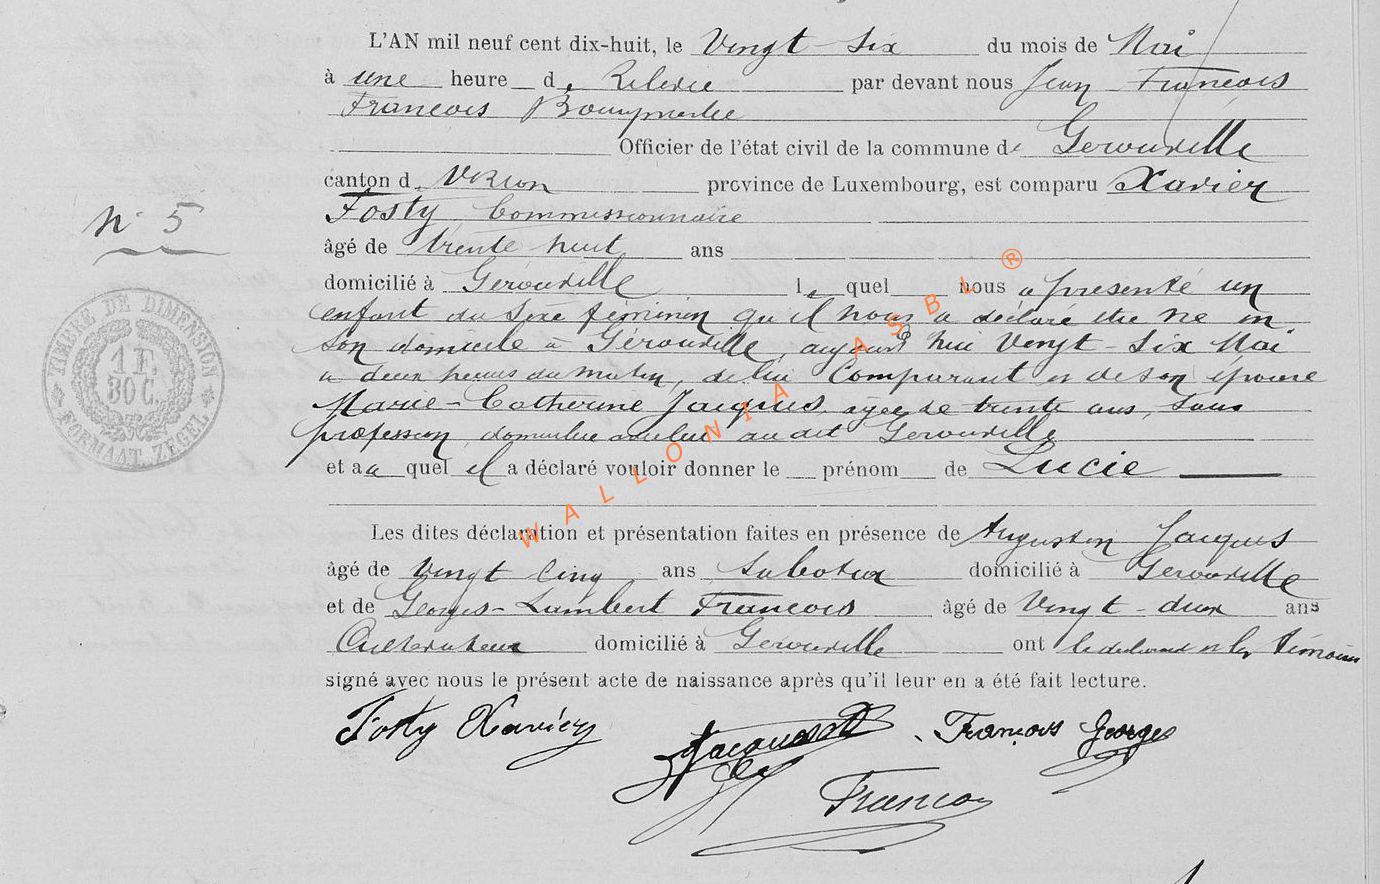 L'AN mil neuf cent dix-huit, le Vingt-Six du mois de Mai
à une heure de Relevée par devant nous Jean François
François Bourgmestre
Officier de l'état civil de la commune de Gérouville
canton de Virton province de Luxembourg, est comparu Xavier
Fosty Commissionnaire
N° 5
âgé de trente huit ans
domicilié à Gérouville lequel nous a présenté un
enfant du Sexe féminin qu'il nous a déclaré être né en
Son domicile à Gérouville, aujourd'hui Vingt-Six Mai
à deux heures du matin, de lui Comparant et de son épouse
Marie-Catherine Jacques âgée de trente ans, Sans
profession, domiciliée audit Gérouville
et auquel il a déclaré vouloir donner le prénom de Lucie
Les dites déclaration et présentation faites en présence de Augustin Jacques
âgé de Vingt Cinq ans Sabotier domicilié à Gérouville
et de Georges-Lambert François âgé de Vingt-deux ans
Cultivateur domicilié à Gérouville ont le déclarant et les témoins
signé avec nous le présent acte de naissance après qu'il leur en a été fait lecture.
Fosty Xavier
Jacques A
François Georges
François
TIMBRE DE DIMENSION
1 F.
30 C.
FORMAAT ZEGEL
WALLONIA ASBL ®